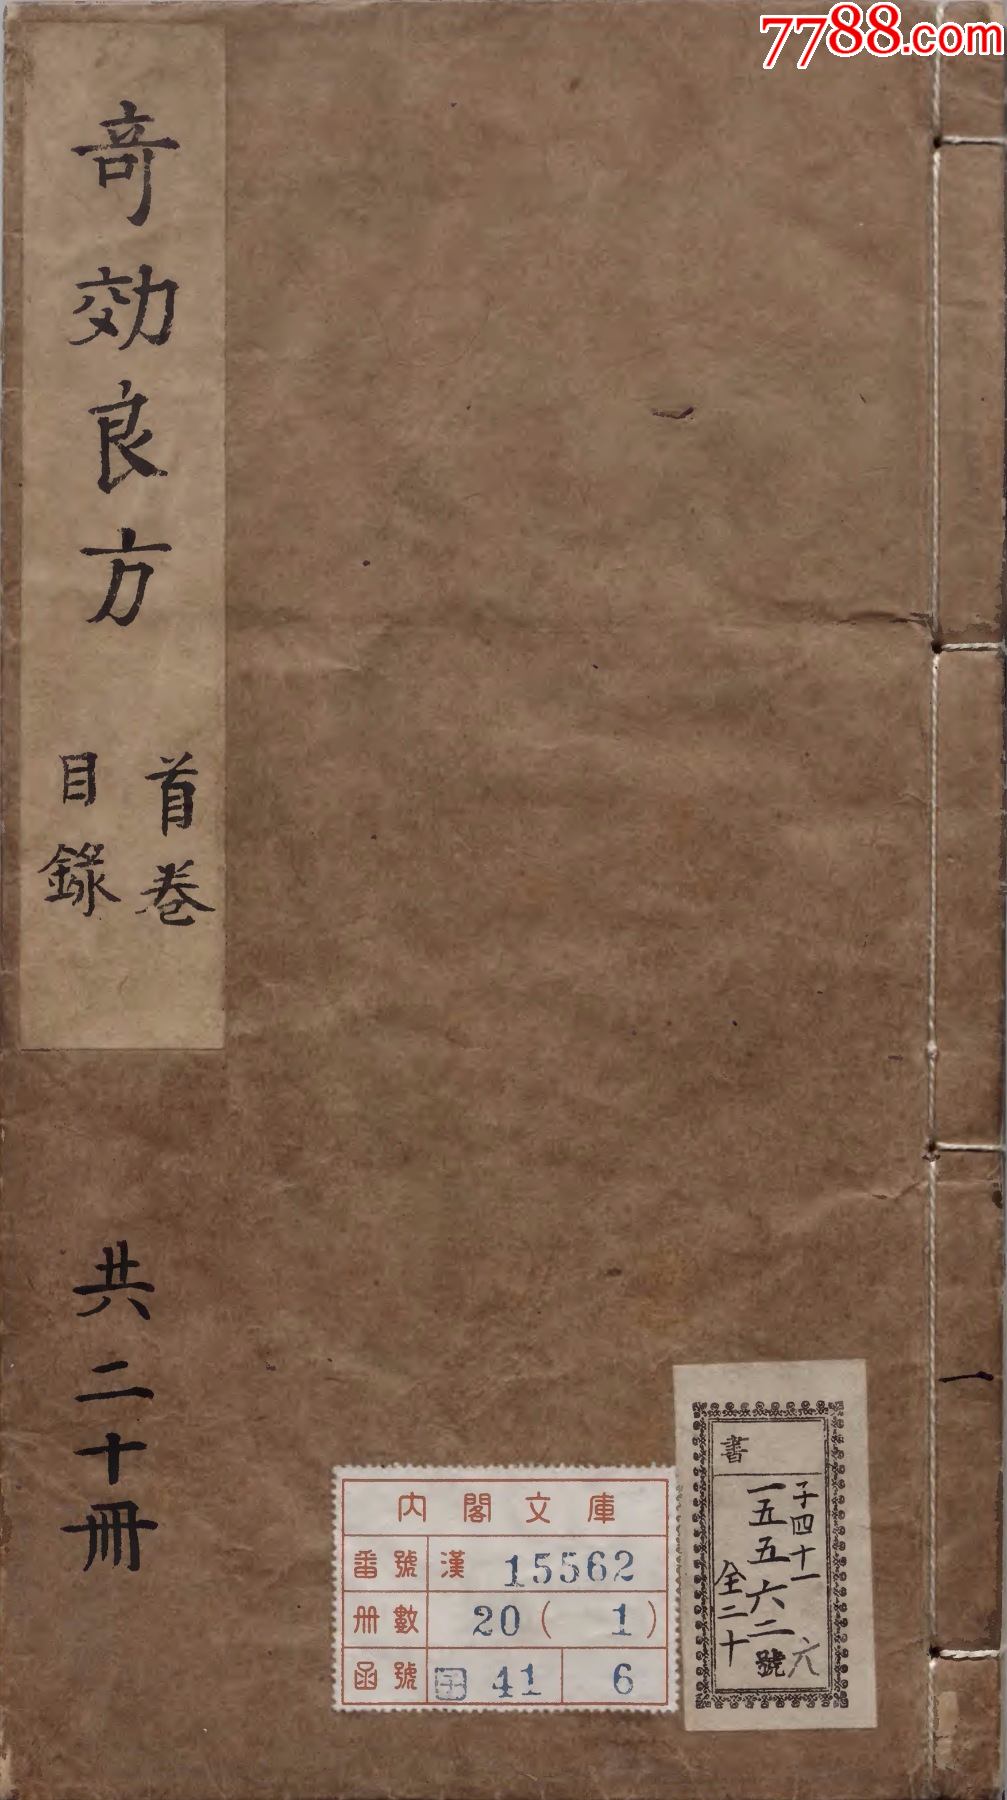 7788.com
奇効良方
首卷
目錄
共二十冊
一
書
子四十一
六
一五五六二號
全二十
內閣文庫
番號 漢 15562
冊數 20 ( 1 )
函號 41 6